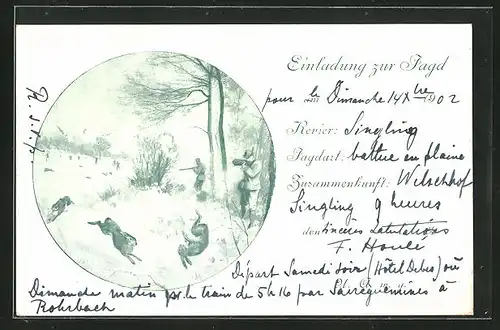 R. s. v. p.
Einladung zur Jagd
pour le Dimanche 14 Xbre 1902
Revier: Singling
Jagdart: battue en plaine
Zusammenkunft: Welschhof
Singling 9 heures
den sincères salutations
F.
Départ Samedi soir (Hôtel Dehos) ou
Dimanche matin par le train de 5h16 par Sarreguemines à
Rohrbach